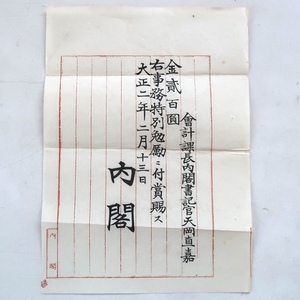 會計課長內閣書記官天岡直嘉
金貳百圓
右事務特別勉勵ニ付賞賜ス
大正二年二月十三日
內閣
內閣